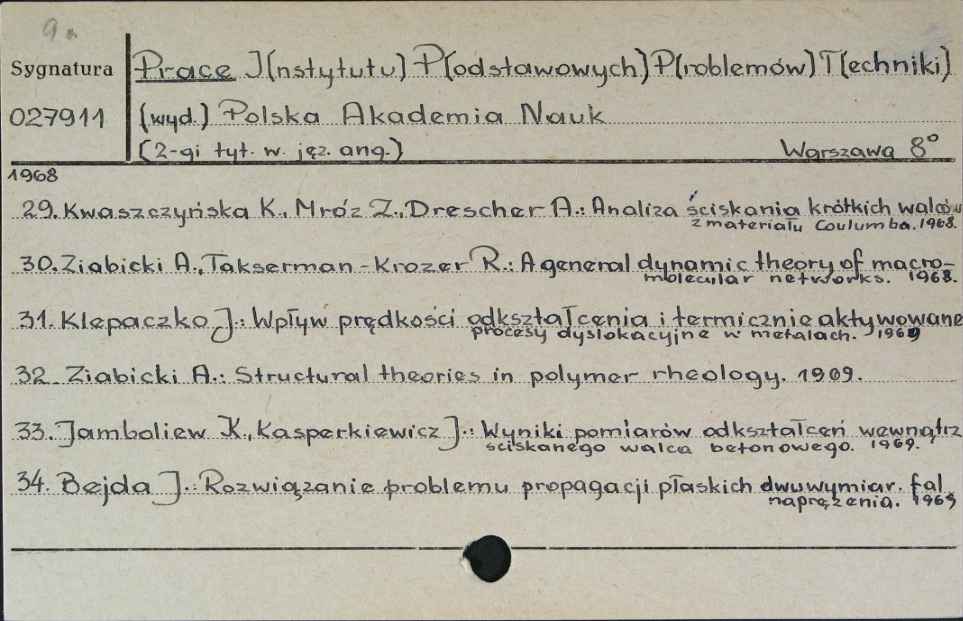 9.
Sygnatura
Prace I(nstytutu) P(odstawowych) P(roblemów) T(echniki)
027911
(wyd.) Polska Akademia Nauk
(2-gi tyt. w. jęz. ang.) Warszawa 8°
1968
29. Kwaszczyńska K., Mróz Z., Drescher A.: Analiza ściskania krótkich walców
z materiału Coulumba. 1968.
30. Ziabicki A., Takserman-Krozer R.: A general dynamic theory of macro-
molecular networks. 1968.
31. Klepaczko J.: Wpływ prędkości odkształcenia i termicznie aktywowane
procesy dyslokacyjne w metalach. 1969
32. Ziabicki A.: Structural theories in polymer rheology. 1909.
33. Jamboliew K., Kasperkiewicz J.: Wyniki pomiarów odkształceń wewnątrz
ściskanego walca betonowego. 1969.
34. Bejda J.: Rozwiązanie problemu propagacji płaskich dwuwymiar. fal
naprężenia. 1969